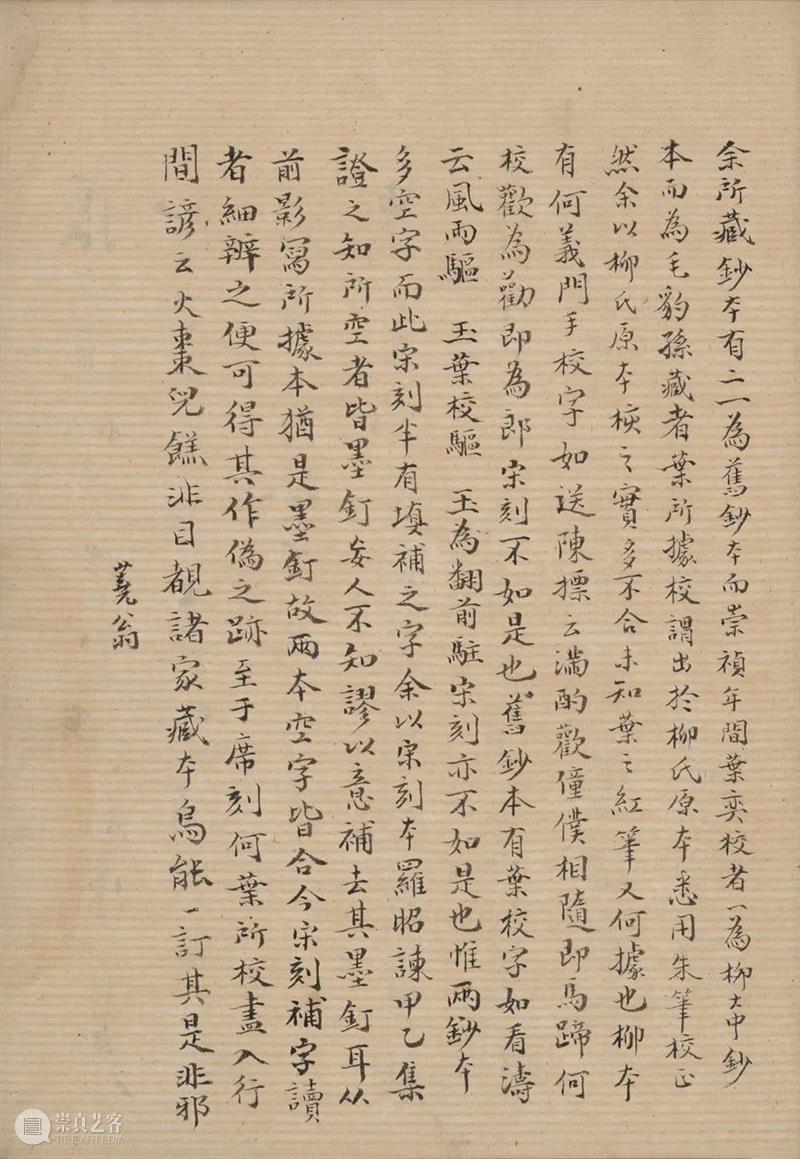 余所藏鈔本有二一為舊鈔本而崇禎年間葉奕校者一為柳大中鈔
本而為毛豹孫藏者葉所據校謂出於柳氏原本悉用朱筆校正
然余以柳氏原本核之實多不合未知葉之紅筆又何據也柳本
有何義門手校字如送陳摽云滿酌歡僮僕相隨即馬蹄何
校歡為勸即為郎宋刻不如是也舊鈔本有葉校字如看濤
云風雨驅 玉葉校驅 玉為翻前駐宋刻亦不如是也惟兩鈔本
多空字而此宋刻半有填補之字余以宋刻本羅昭諫甲乙集
證之知所空者皆墨釘妄人不知謬以意補去其墨釘耳从
前影寫所據本猶是墨釘故兩本空字皆合今宋刻補字讀
者細辨之便可得其作偽之跡至于席刻何葉所校盡入行
間諺云火棗兒餻非目覩諸家藏本烏能一一訂其是非邪
蕘翁
崇真艺客
TRUEART.COM